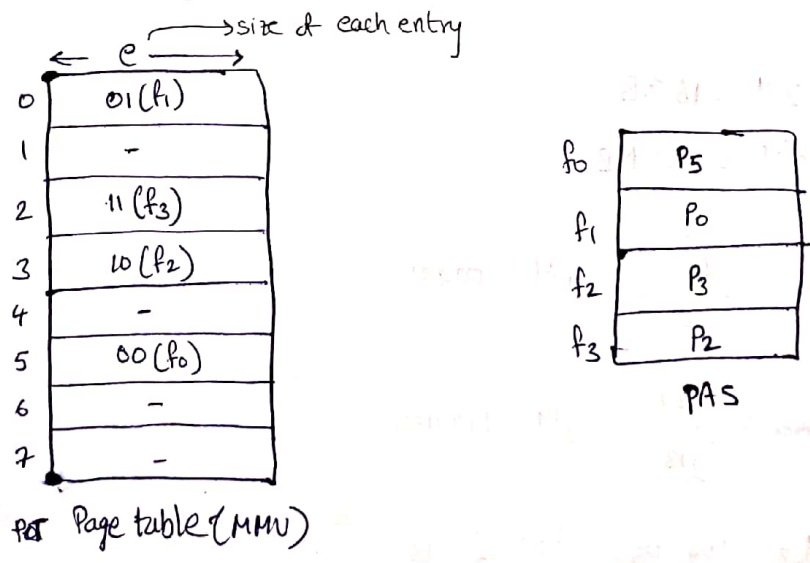 e → size of each entry
0 01(f1)
1 -
2 11(f3)
3 10(f2)
4 -
5 00(f0)
6 -
7 -
Page table (MMU)
f0 P5
f1 P0
f2 P3
f3 P2
PAS